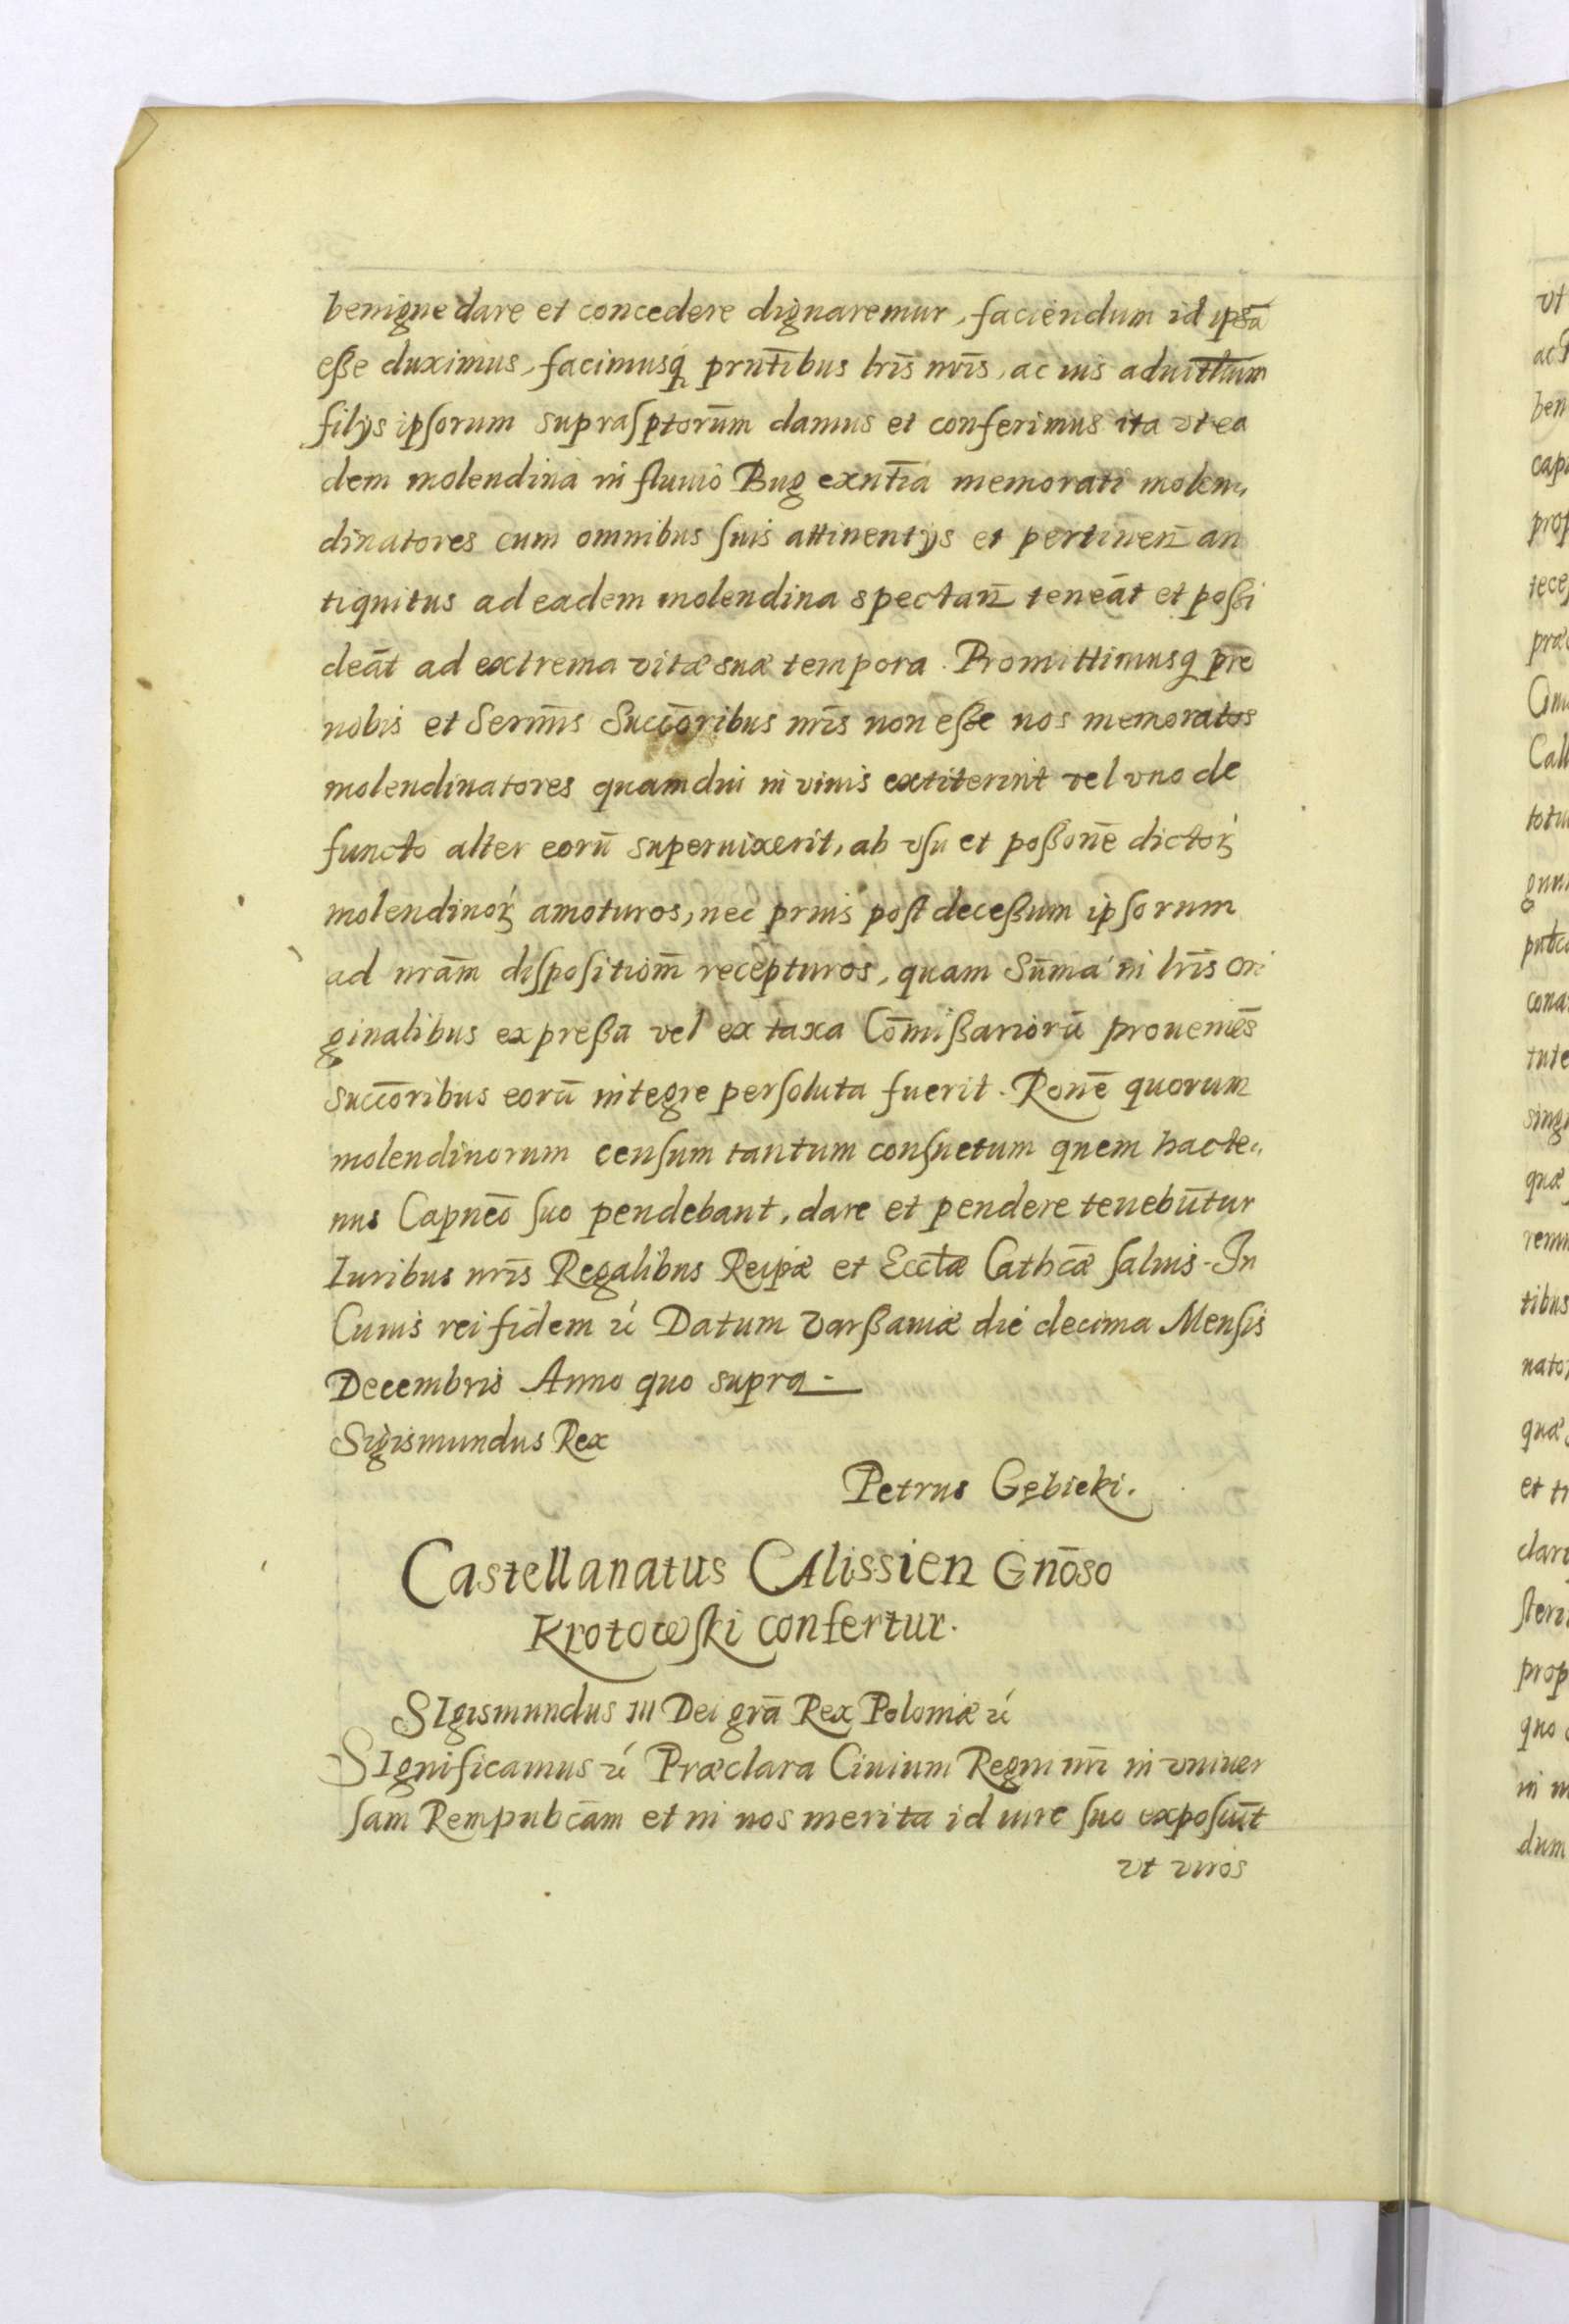 benigne dare et concedere dignaremur, faciendum id ipsū
eſſe duximus, facimusq́ prn̄tibus lrīs nrīs, ac ius aduitlium
filÿs ipſorum supraſptorūm damus et conferimus ita vt ea
dem molendina in fluuio Bug exn̄tia memorati molen,
dinatores cum omnibus ſuis attinentÿs et pertinen̄ an
tiquitus ad eadem molendina spectan̄ teneāt et poſſi
deāt ad extrema vitæ suæ tempora. Promittimusq prō
nobis et Sermīs Succōribus nrīs non eſſe nos memoratos
molendinatores quamdiu in viuis extiterint vel vno de
functo alter eorū superuixerit, ab vſu et poßonē dictoꝝ
molendinoꝝ amoturos, nec prius poſt deceßum ipſorum
ad nrām diſpoſitiom̄ recepturos, quam Sūma in lrīs ori
ginalibus expreßa vel ex taxa Cōmißariorū proueniēs
succōribus eorū integre perſoluta fuerit. Ronē quorum
molendinorum cenſum tantum conſuetum quem hacte,,
nus Capneō ſuo pendebant, dare et pendere tenebūtur
Iuribus nrīs Regalibus Reipæ et Eccłæ Cathcæ ſaluis. In
Cuius rei fidem ꝛć Datum Varßauiæ die decima Menſis
Decembris Anno quo supra.
Sigismundus Rex
Petrus Gębicki.
Castellanatus CAlissien Gnōso
Krotowſki confertur.
SIgismundus III Dei grā Rex Poloniæ ꝛć
SIgnificamus ꝛć Præclara Ciuium Regni nrī in vniuer
ſam Rempubcām et in nos merita id iure ſuo expoſcūt
vt viros